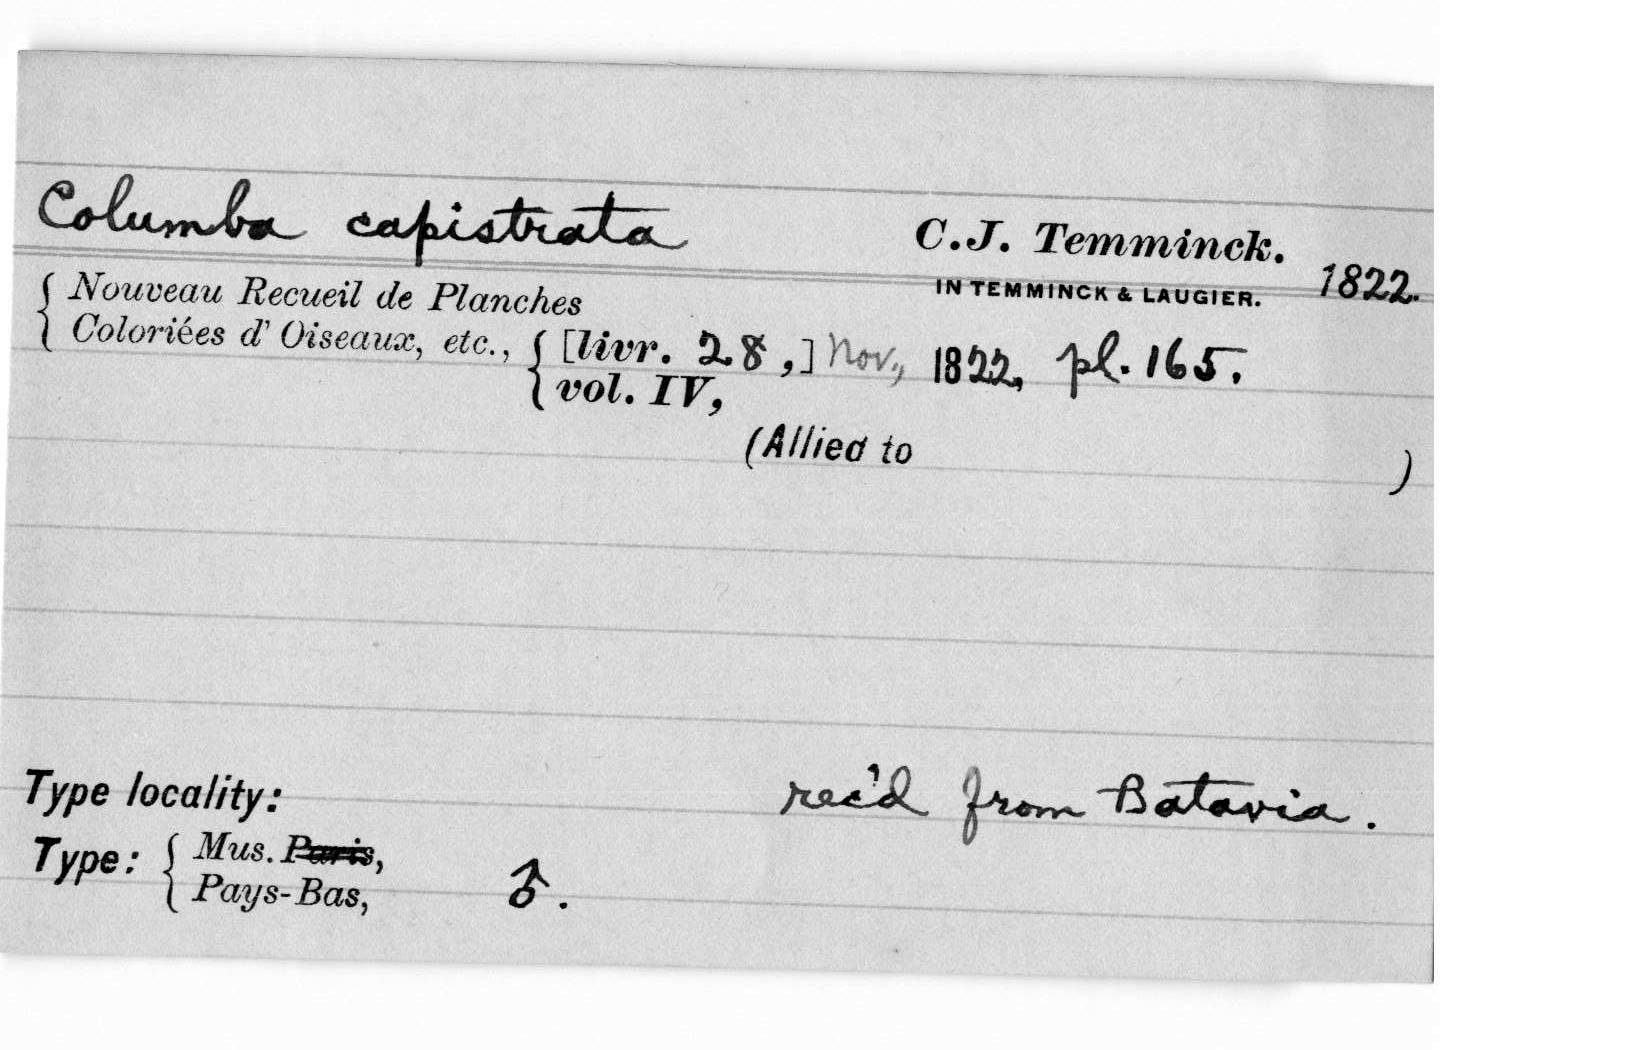 Columba capistrata C.J. Temminck.
IN TEMMINCK & LAUGIER. 1822.
Nouveau Recueil de Planches
Coloriées d' Oiseaux, etc., [livr. 28,] Nov., 1822, pl. 165.
vol. IV,
(Allied to )
Type locality: rec'd from Batavia.
Type: Mus. Paris,
Pays-Bas, ♂.